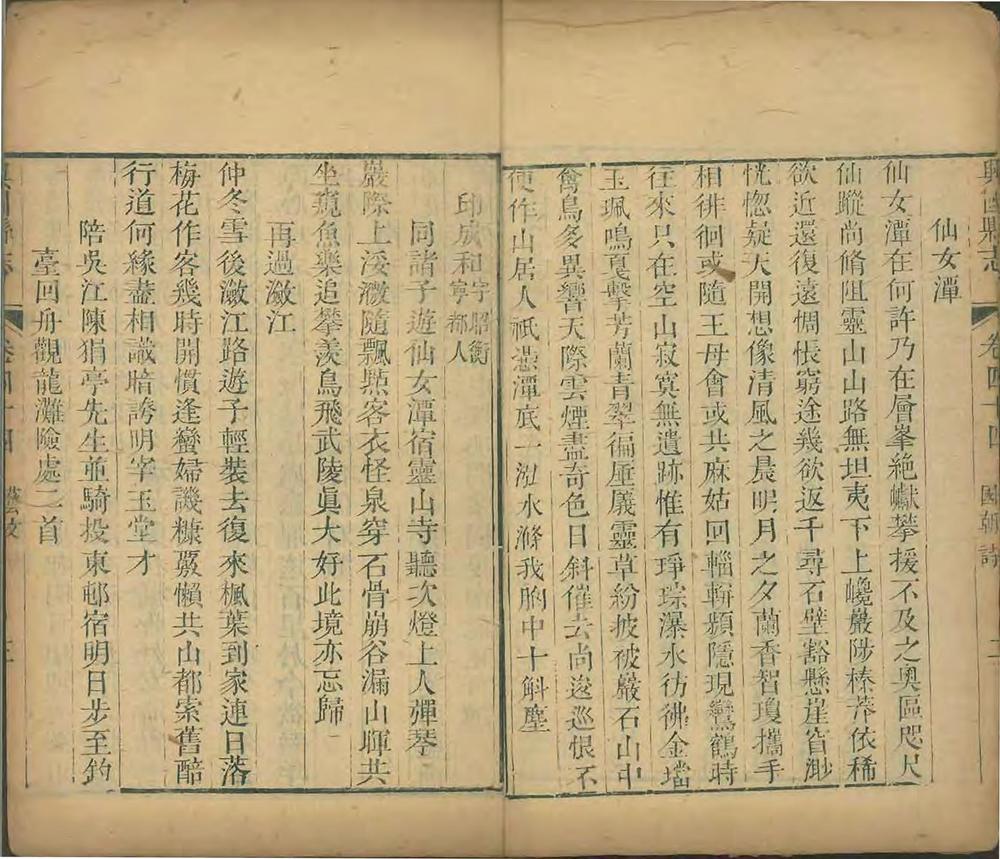 興國縣志 卷四十四 國朝詩 二
仙女潭
仙女潭在何許乃在層峯絶巘攀援不及之奧區咫尺
仙蹤尚脩阻靈山山路無坦夷下上巉巖陟榛莽依稀
欲近還復遠惆悵窮途幾欲返千尋石壁豁懸崖窅渺
恍惚疑天開想像清風之晨明月之夕蘭香智瓊攜手
相徘徊或隨王母會或共麻姑回輜輧顯隱現鸞鶴時
往來只在空山寂寞無遺跡惟有琤琮瀑水彷彿金璫
玉珮鳴戛擊芳蘭青翠徧厜㕒靈草紛披被巖石山中
禽鳥多異響天際雲煙盡奇色日斜催去尚逡巡恨不
便作山居人祇憑潭底一泓水滌我胸中十斛塵
印成和字昭衡寧都人
同諸子遊仙女潭宿靈山寺聽次燈上人彈琴
巖際上浽溦隨飄㸃客衣怪泉穿石骨崩谷漏山暉共
坐窺魚樂追攀羨鳥飛武陵眞大好此境亦忘歸
再過瀲江
仲冬雪後瀲江路遊子輕裝去復來楓葉到家連日落
梅花作客幾時開慣逢蠻婦譏糠覈懶共山都索舊醅
行道何緣盡相識暗誘明宰玉堂才
陪吳江陳狷亭先生並騎投東邨宿明日步至釣
臺回舟觀龍灘險處二首
興國縣志 卷四十四 藝文 三